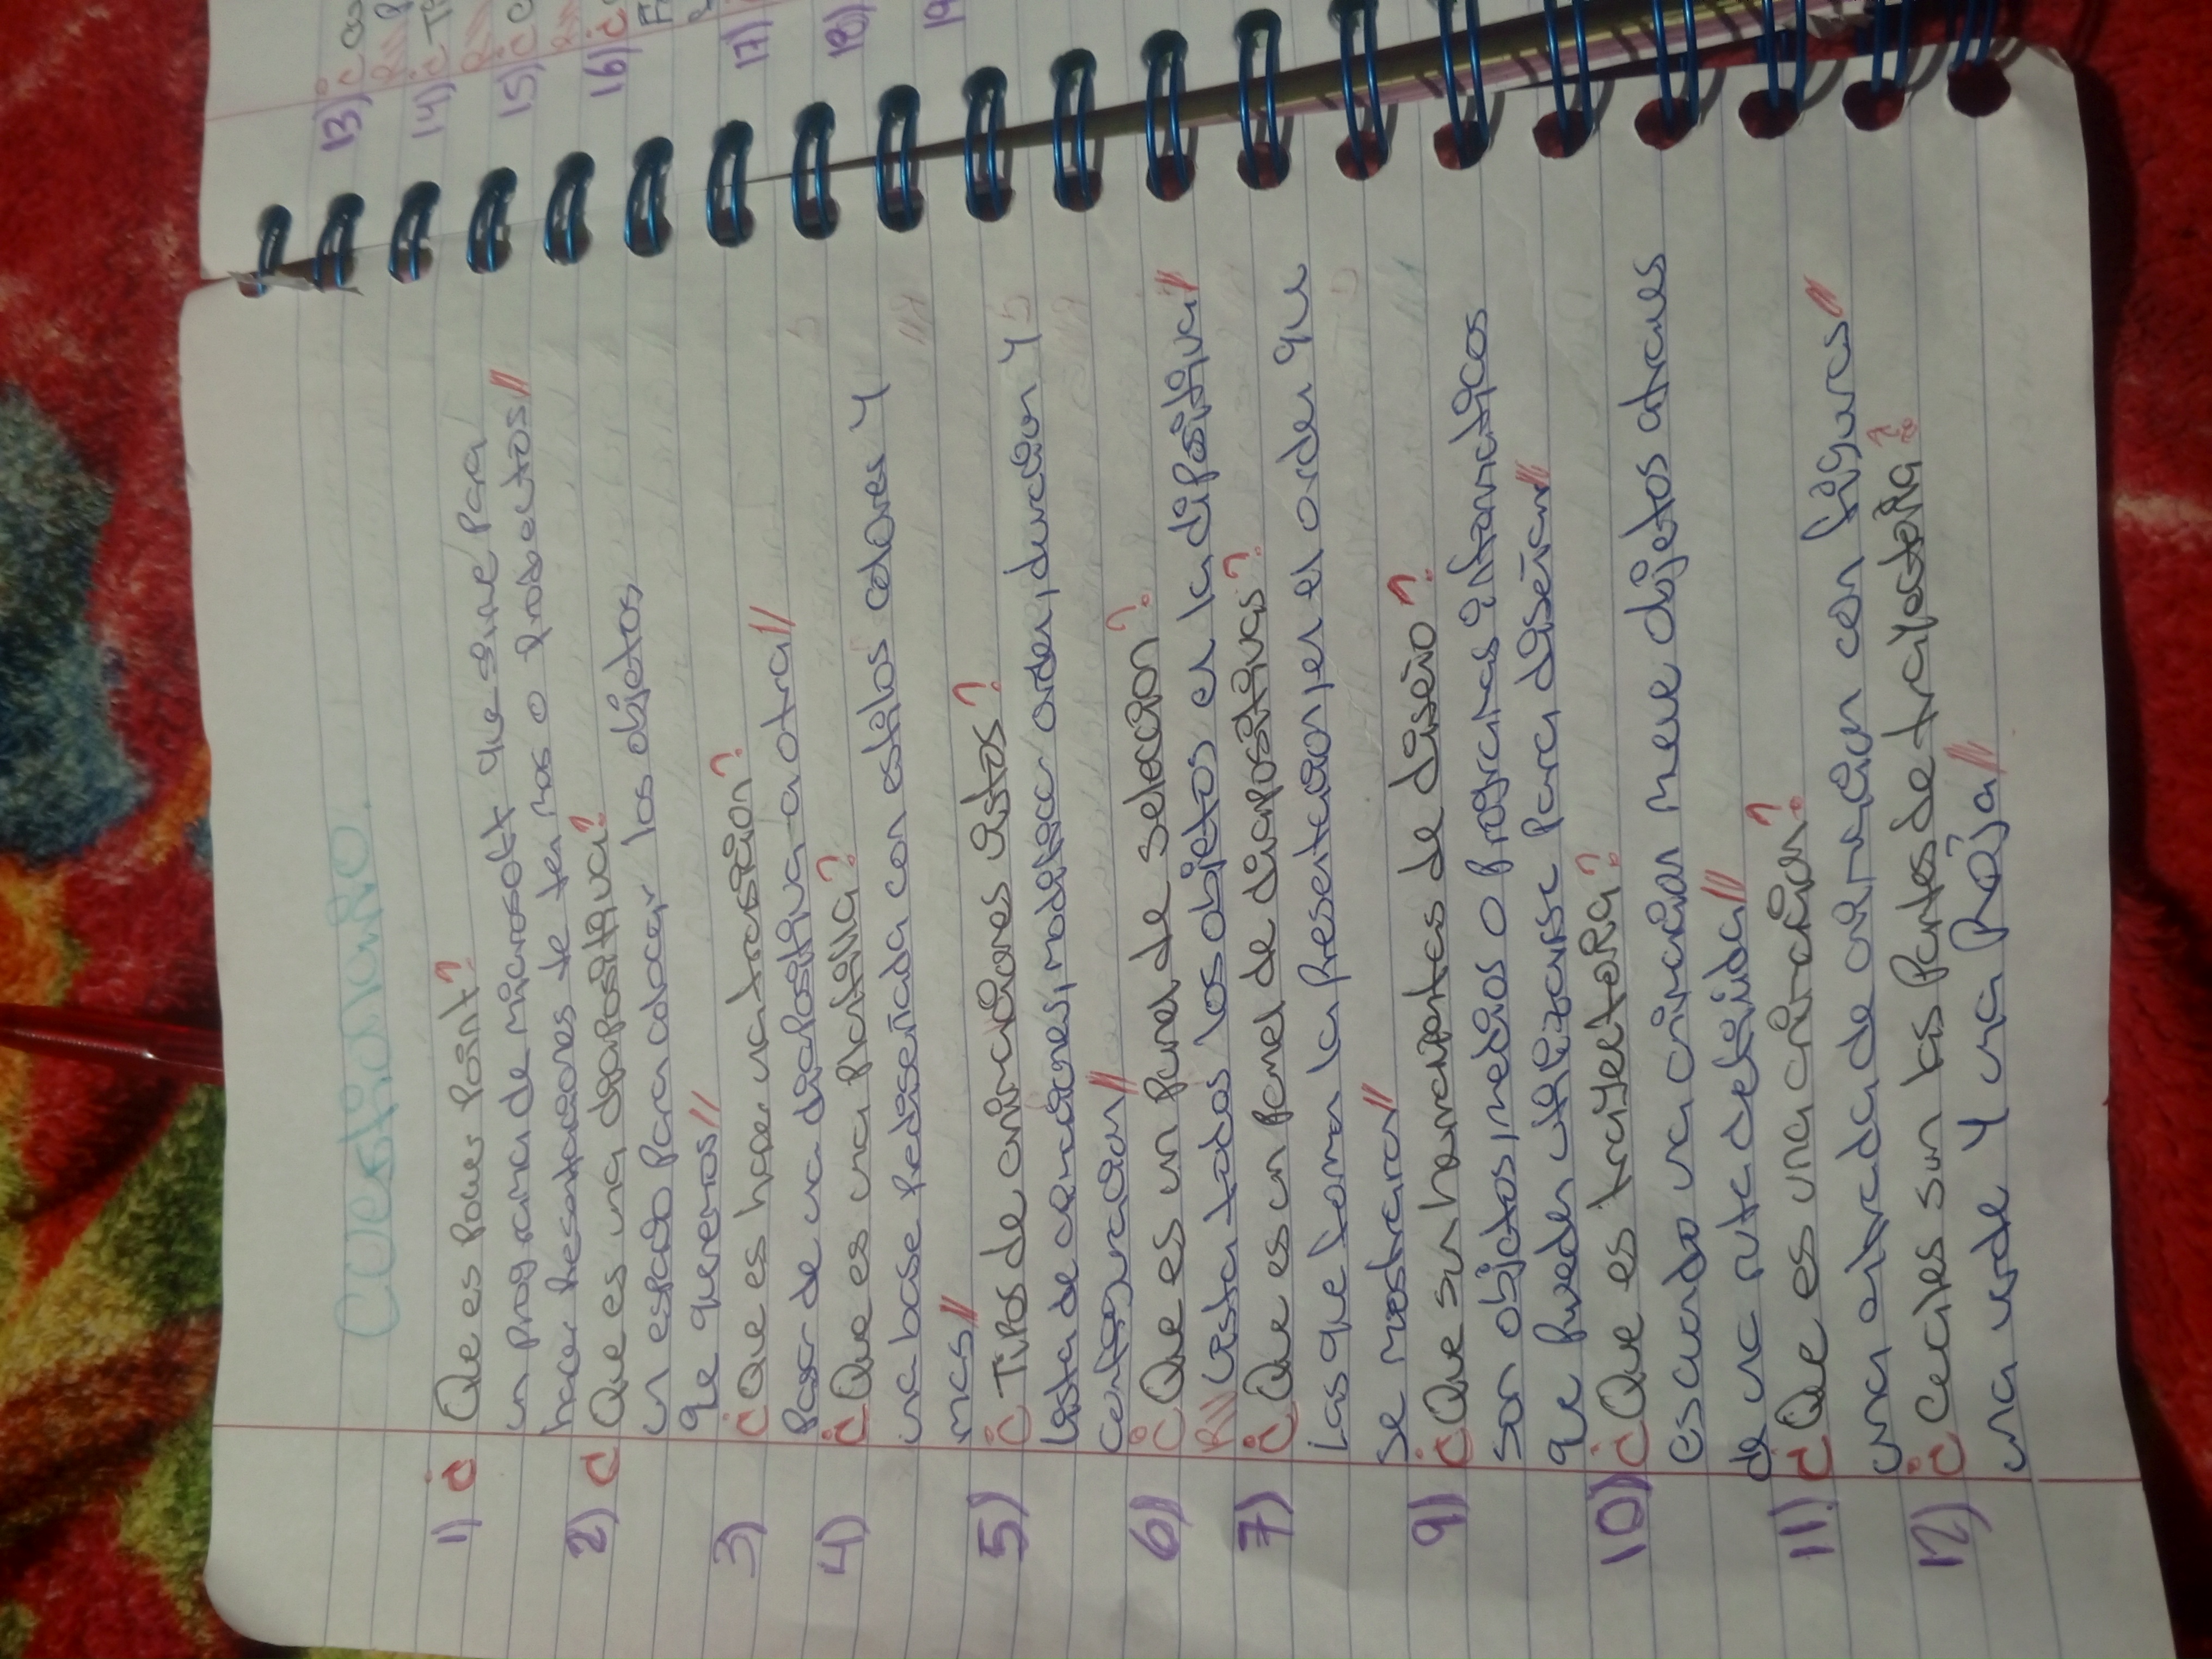 Cuestionario.
1) ¿Que es Power Point?
un programa de microsoft que sirve para
hacer presentaciones de temas o proyectos//
2) ¿Que es una diapositiva?
un espacio para colocar los objetos
que queremos//
3) ¿Que es hacer una trasición?
Pasar de una diapositiva a otra//
4) ¿Que es una plantilla?
una base prediseñada con estilos colores y
mas//
5) ¿Tipos de animaciones vistos?
Lista de animaciones, modificar orden, duracion y
configuracion//
6) ¿Que es un panel de selección?
R// Lista todos los objetos en la dipositiva//
7) ¿Que es un panel de diapositivas?
Las que forman la presentacion, en el orden que
se mostraran//
9) ¿Que son herramientas de diseño?
son objetos, medios o programas informaticos
que pueden utilizarse para diseñar//
10) ¿Que es trayectoRa?
es cuando una animacion mueve objetos atraves
de una ruta definida//
11) ¿Que es una animación?
una entrada de animacion con figuras//
12) ¿Cuales son las partes de trayectoRa?
una verde y una Roja//
13) ¿
14) ¿
15) ¿
16) ¿
17)
18)
19